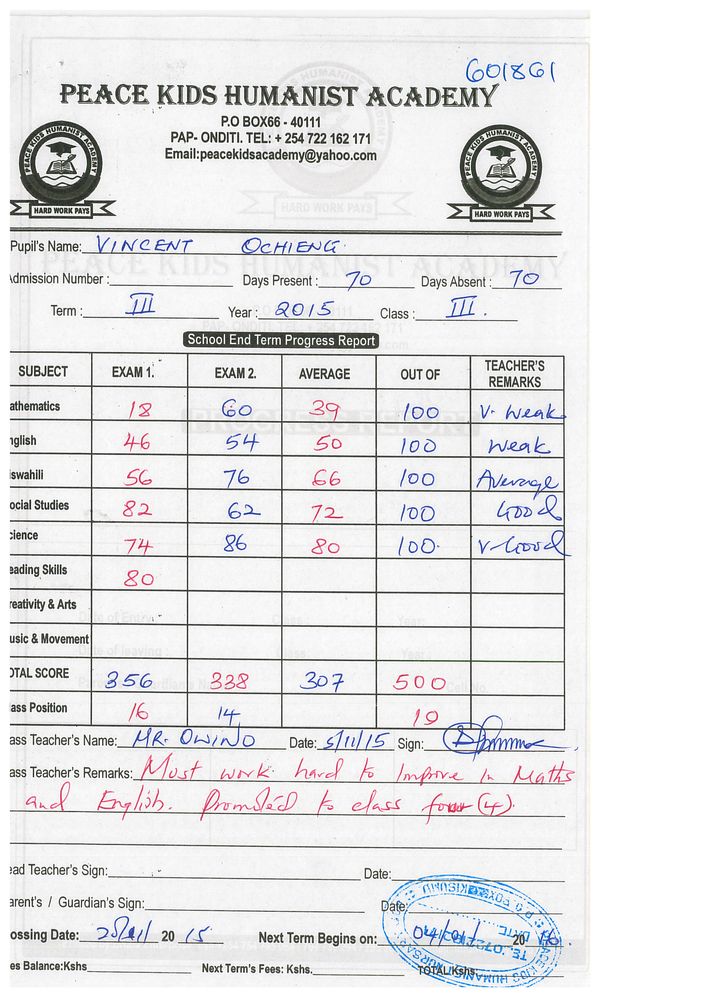 601861
PEACE KIDS HUMANIST ACADEMY
P.O BOX66 - 40111
PAP- ONDITI. TEL: + 254 722 162 171
Email:peacekidsacademy@yahoo.com
PEACE KIDS HUMANIST ACADEMY
HARD WORK PAYS
PEACE KIDS HUMANIST ACADEMY
HARD WORK PAYS
Pupil's Name: VINCENT OCHIENG.
dmission Number: Days Present: 70 Days Absent: 70
Term: III Year: 2015 Class: III.
School End Term Progress Report
SUBJECT EXAM 1. EXAM 2. AVERAGE OUT OF TEACHER'S REMARKS
athematics 18 60 39 100 V. Weak
nglish 46 54 50 100 Weak
iswahili 56 76 66 100 Average
ocial Studies 82 62 72 100 Good
cience 74 86 80 100. V-Good
eading Skills 80
reativity & Arts
usic & Movement
OTAL SCORE 356 338 307 500
ass Position 16 14 19
ass Teacher's Name: MR. OWINO Date: 5/11/15 Sign:
ass Teacher's Remarks: Must work hard to Improve in Maths
and English. Promoted to class four (4).
ead Teacher's Sign: Date:
arent's / Guardian's Sign: Date:
ossing Date: 20 15 Next Term Begins on: 04/01/ 20 16.
es Balance:Kshs Next Term's Fees: Kshs. TOTAL Kshs: